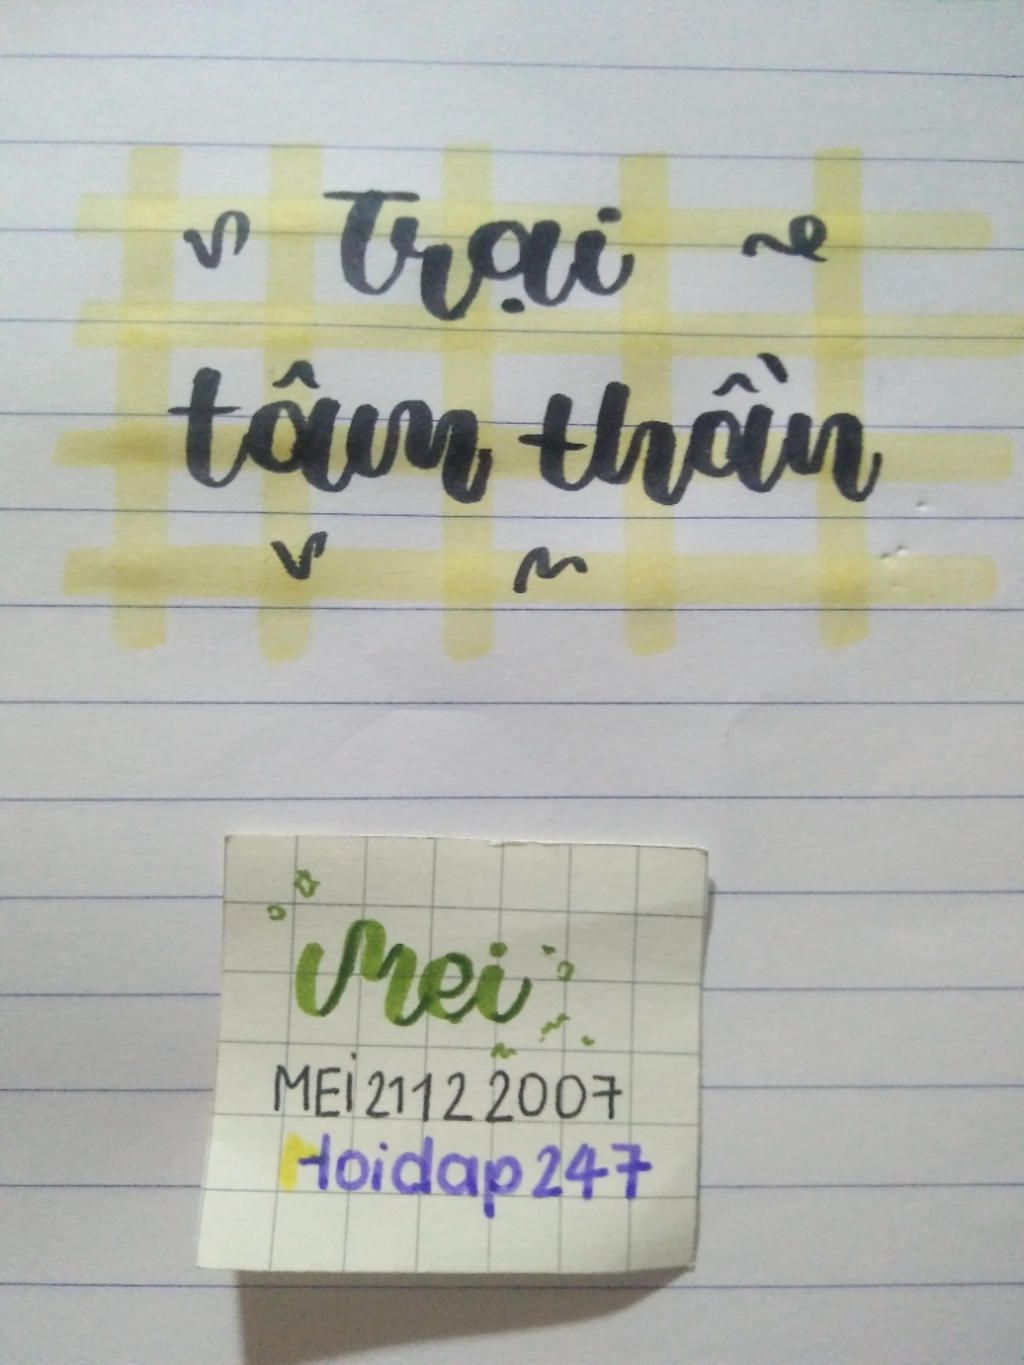 Trại
tâm thần
Mei
MEi21122007
Hoidap247